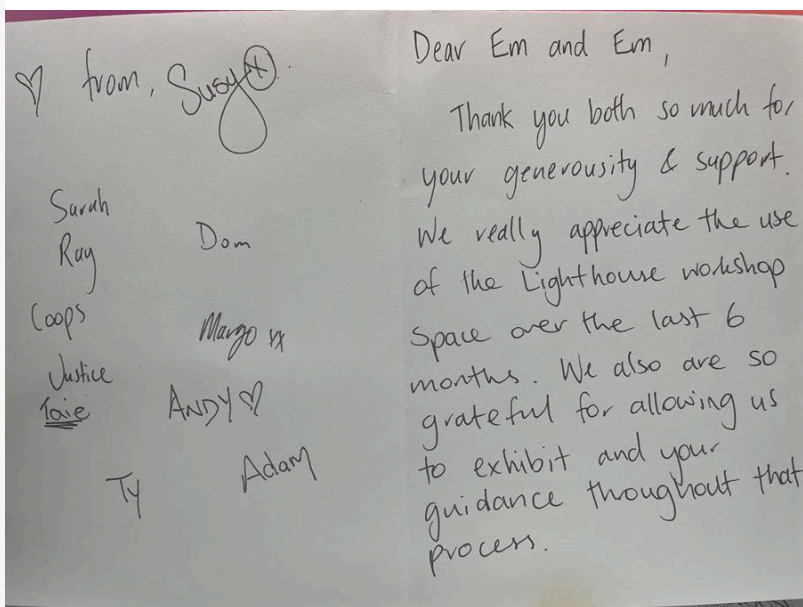 ♡ from, Susy x
Sarah
Ray
Dom
Coops
Margo xx
Justice
Taie
ANDY ♡
Ty
Adam
Dear Em and Em,
Thank you both so much for
your generousity & support.
We really appreciate the use
of the Lighthouse workshop
Space over the last 6
months. We also are so
grateful for allowing us
to exhibit and your
guidance throughout that
process.